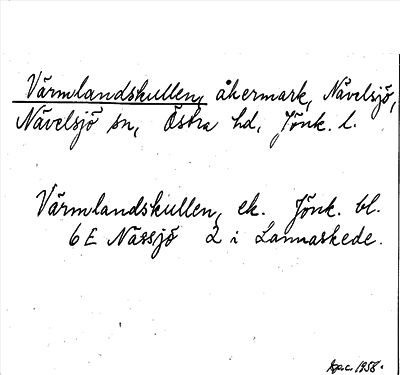 Värmlandskullen, åkermark, Nävelsjö,
Nävelsjö sn, Östra hd, Jönk. l.
Värmlandskullen, ek. Jönk. bl.
6 E Nässjö 2 i Lannaskede.
1958.